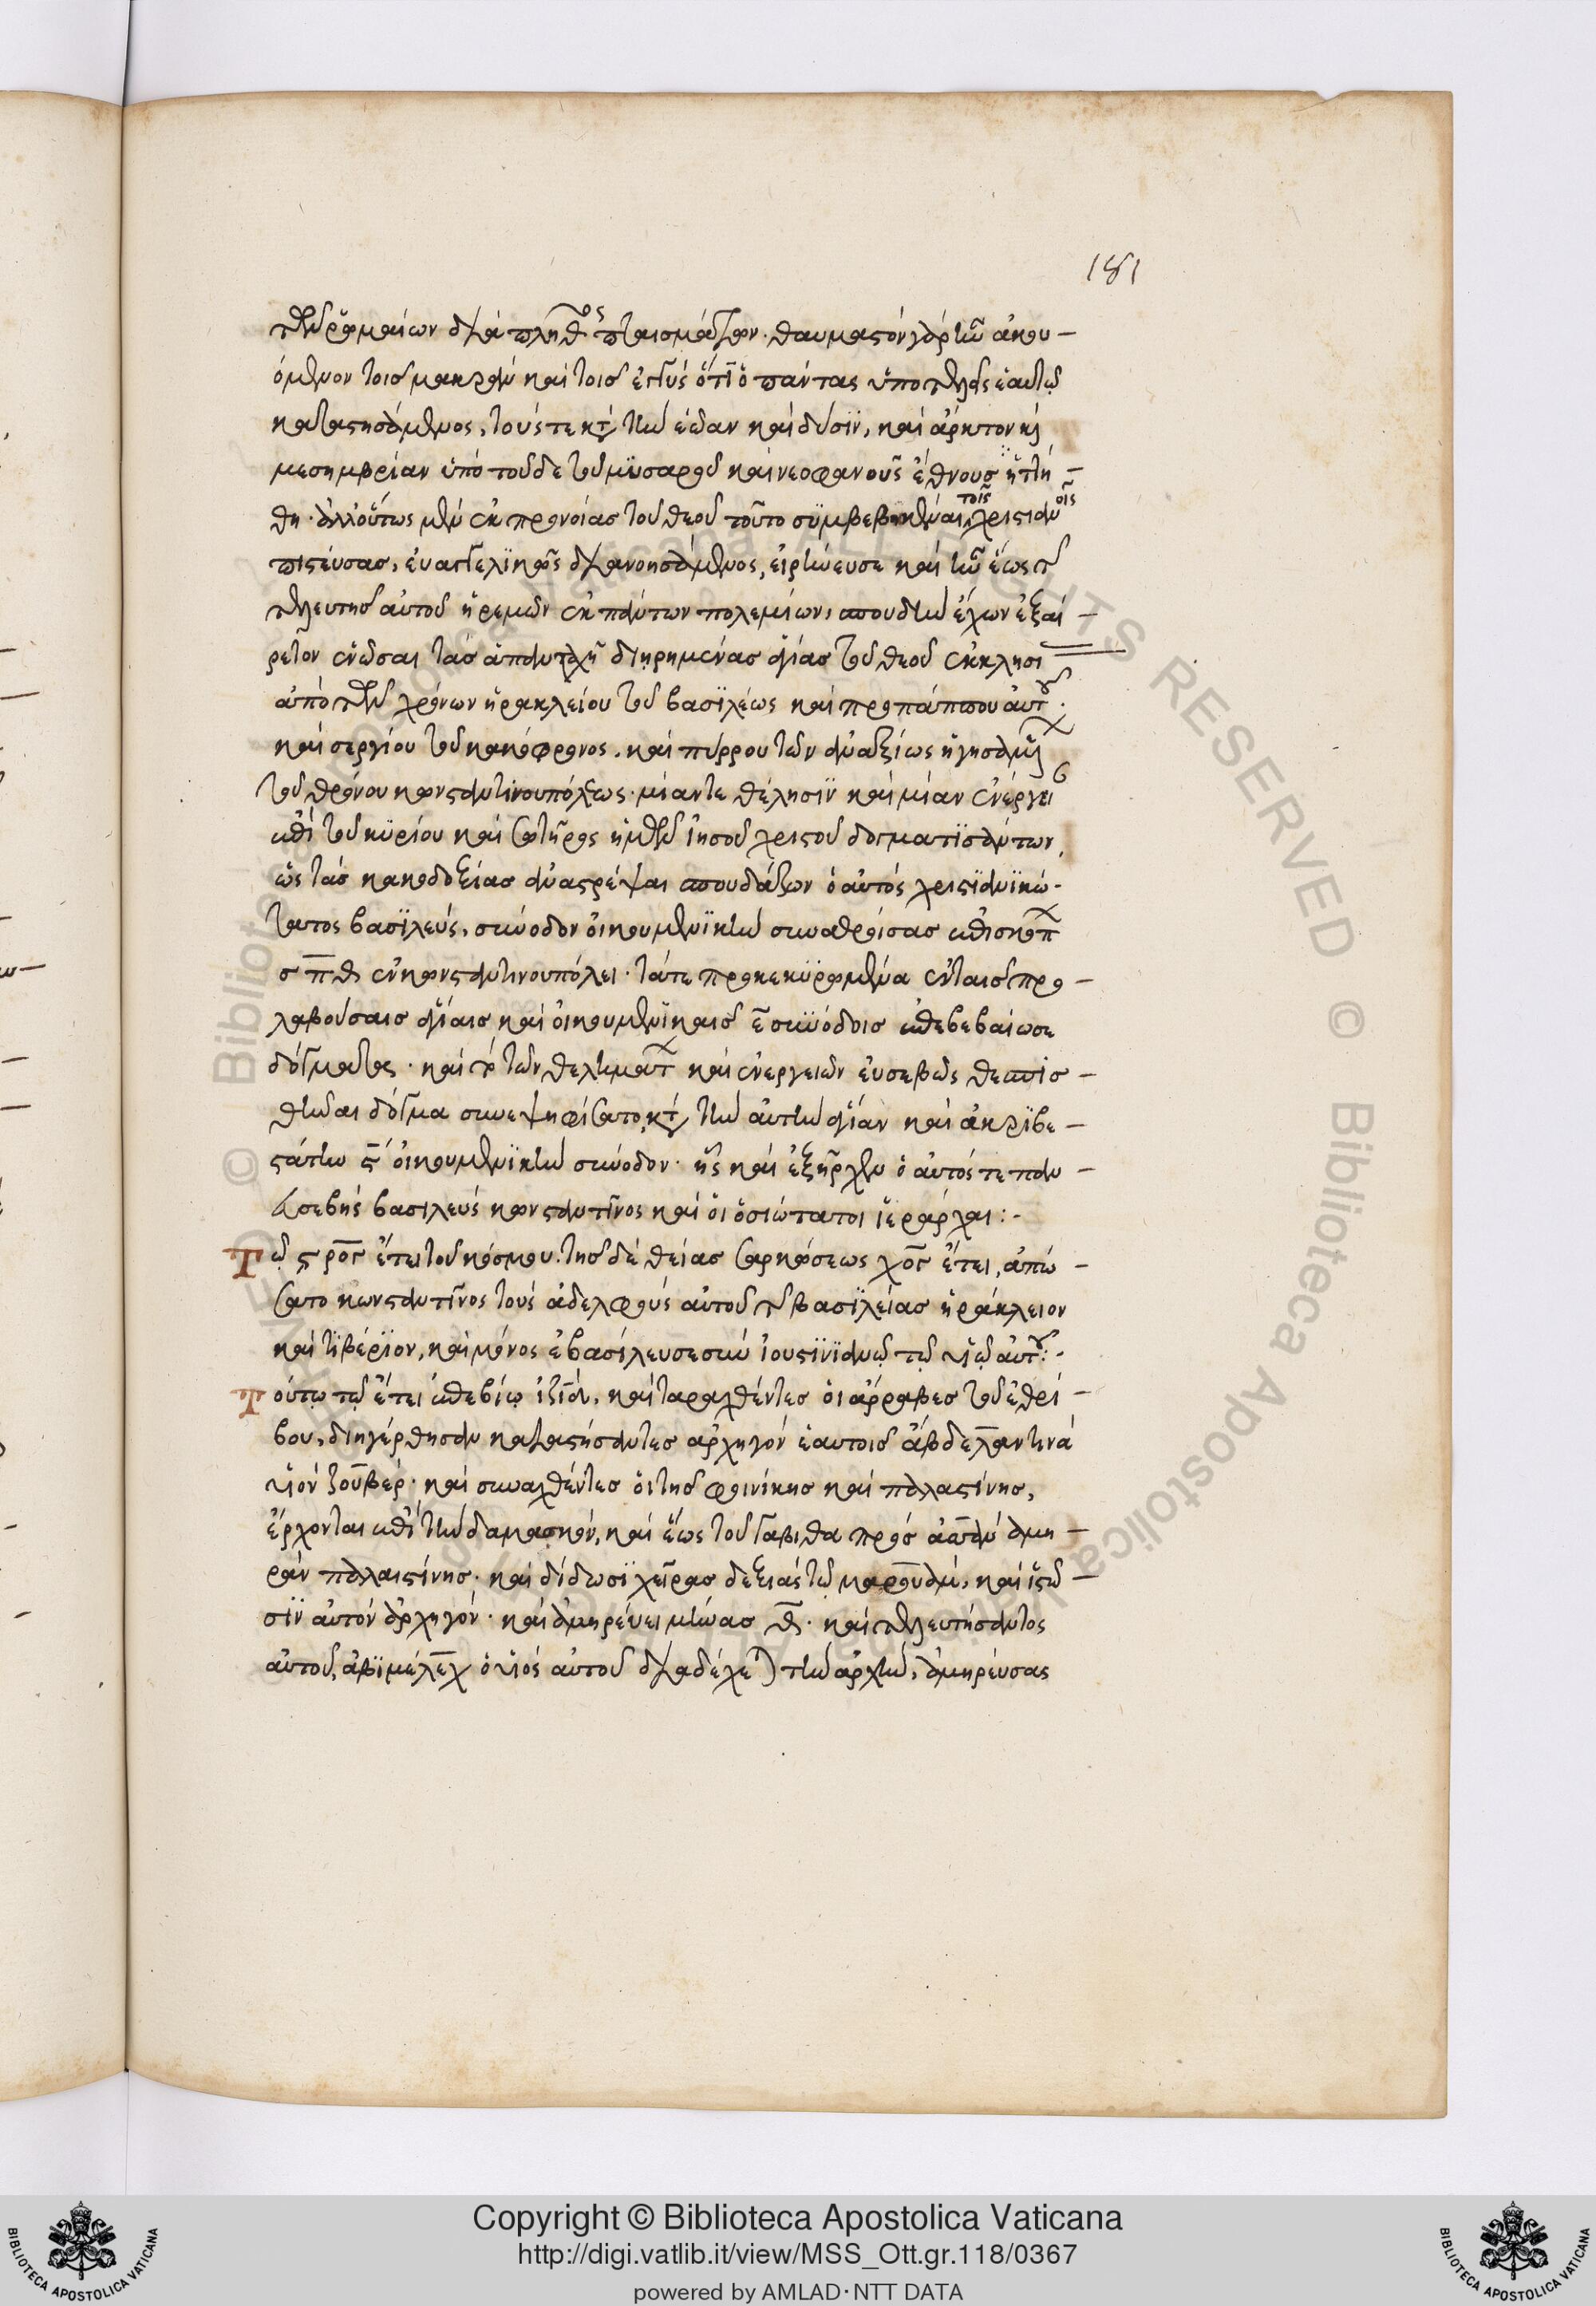 181
τῶν ῥωμαίων διὰ πλῆθος πταισμάτων. θαυμαστὸν γὰρ ἦν ἀκου-
όμενον τοῖς μακρὰν καὶ τοῖς ἐγγὺς ὅτι ὁ πάντας ὑποτελεῖς ἑαυτῷ
καταστησάμενος, τούς τε κατὰ τὴν ἑώαν καὶ δύσϊν, καὶ ἄρκτον καὶ
μεσημβρίαν ὑπὸ τοῦδε τοῦ μϋσαροῦ καὶ νεοφανοῦς ἔθνους ἡττή-
θη. ἀλλ' οὕτως μὲν ἐκ προνοίας τοῦ θεοῦ τοῦτο σϋμβεβηκέναι τοῖς χριστιανοῖς
πιστεύσας, εὐαγγελϊκῶς διανοησάμενος, εἰρήνευσε καὶ ἦν ἕως τῆς
τελευτῆς αὐτοῦ ἠρεμῶν ἐκ πάντων πολεμίων, σπουδὴν ἔχων ἐξαί-
ρετον ἑνῶσαι τὰς ἁπανταχῇ διῃρημένας ἁγίας τοῦ θεοῦ ἐκκλησί
ἀπὸ τῶν χρόνων ἡρακλείου τοῦ βασϊλέως καὶ προπάππου αὐτοῦ.
καὶ σεργίου τοῦ κακόφρονος. καὶ πύρρου τῶν ἀναξίως ἡγησαμέν
τοῦ θρόνου κωνσταντινουπόλεως. μίαν τε θέλησϊν καὶ μίαν ἐνέργει
ἐπὶ τοῦ κϋρίου καὶ σωτῆρος ἡμῶν ἰησοῦ χριστοῦ δογματϊσάντων,
ὡς τὰς κακοδοξίας ἀναστρέψαι σπουδάζων ὁ αὐτὸς χριστϊανϊκώ-
τατος βασϊλεὺς, σύνοδον οἰκουμενϊκὴν συναθροίσας ἐπισκόπ
σπθ ἐν κωνσταντινουπόλει. τά τε προκεκϋρωμένα ἐν ταῖς προ-
λαβούσαις ἁγίαις καὶ οἰκουμενϊκαῖς ε συνόδοις ἐπεβεβαίωσε
δόγματα. καὶ τὸ τῶν θελημάτ καὶ ἐνεργειῶν εὐσεβῶς θεσπισ-
θῆναι δόγμα συνεψηφίσατο, κατὰ τὴν αὐτὴν ἁγίαν καὶ ἀκρϊβε-
στάτην ς οἰκουμενϊκὴν σύνοδον. ἧς καὶ ἐξῆρχεν ὁ αὐτός τε παν-
ευσεβὴς βασιλεὺς κωνσταντῖνος καὶ οἱ ὁσιώτατοι ἱεράρχαι:-
Τῷ ςροε ἔτει τοῦ κόσμου. τῆς δὲ θείας σαρκώσεως χοε ἔτει, ἀπώ-
σατο κωνσταντῖνος τοὺς ἀδελφοὺς αὐτοῦ τῆς βασϊλείας ἡράκλειον
καὶ τϊβέρϊον, καὶ μόνος ἐβασίλευσε σὺν ἰουστϊνϊανῷ τῷ υἱῷ αὐτοῦ:-
Τούτῳ τῷ ἔτει ἐπεβίω ἰζίδ, καὶ ταραχθέντες οἱ ἄρραβες τοῦ ἐθρί-
βου, διηγέρθησαν καταστήσαντες ἀρχηγὸν ἑαυτοῖς ἀβδελᾶν τινά
υἱὸν ζουβέρ. καὶ συναχθέντες οἱ τῆς φοινίκης καὶ παλαστίνης,
ἔρχονται ἐπὶ τὴν δαμασκὸν, καὶ ἕως τοῦ γαβιθα πρὸς ἀσὰν ἀμη-
ρὰν παλαιστίνης. καὶ δίδωσϊ χεῖρας δεξιὰς τῷ μαρουὰμ, καὶ ἱστῶ-
σϊν αὐτὸν ἀρχηγόν. καὶ ἀμηρεύει μῆνας θ. καὶ τελευτήσαντος
αὐτοῦ, ἀβϊμέλεχ ὁ υἱὸς αὐτοῦ διαδέχεται τὴν ἀρχὴν, ἀμηρεύσας
Copyright © Biblioteca Apostolica Vaticana
http://digi.vatlib.it/view/MSS_Ott.gr.118/0367
powered by AMLAD · NTT DATA